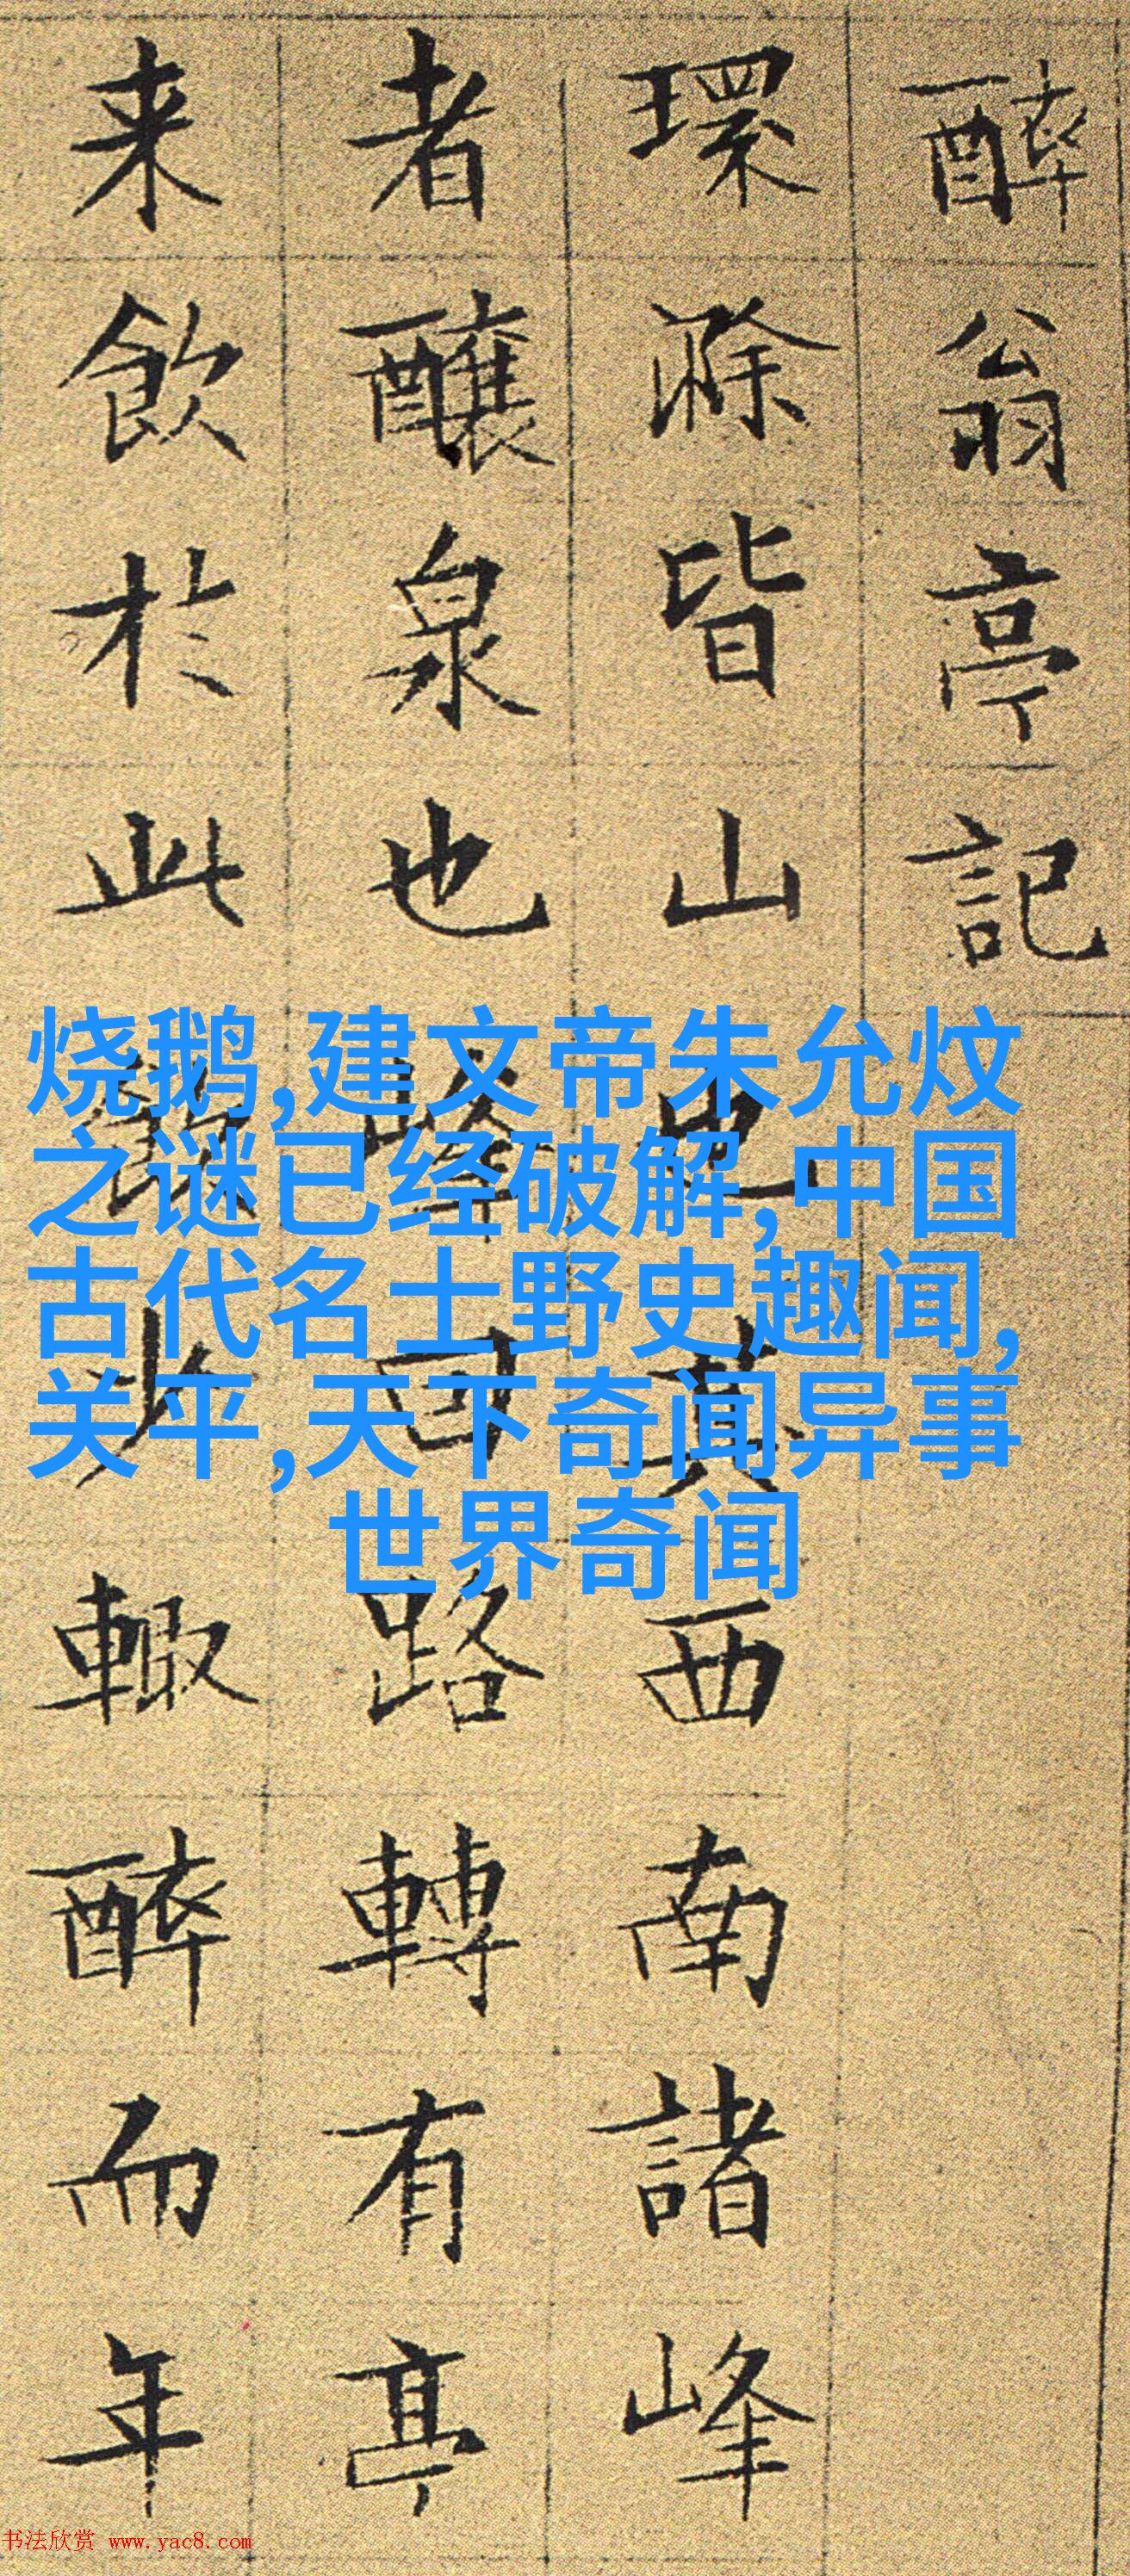 醉翁亭記
環滁皆山也其西南諸峰
者釀泉也峰回路轉有亭
来飲於此飲少輒醉而年
烧鹅,建文帝朱允炆
之谜已经破解,中国
古代名士野史趣闻,
关平,天下奇闻异事
世界奇闻
书法欣赏 www.yac8.com